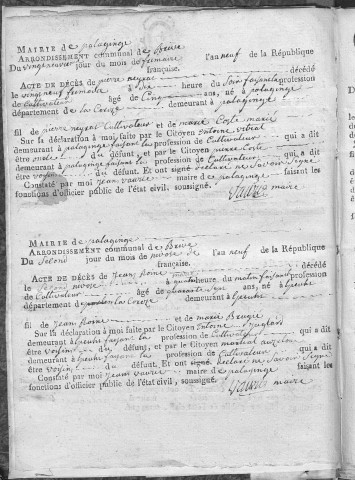 MAIRIE de palazinge
ARRONDISSEMENT communal de Brive
Du vingt neuvieme jour du mois de frimaire l'an neuf de la République
française.
ACTE DE DÉCÈS de pierre neyrat décédé
le vingt neuf frimaire à six heure du soir faisant profession
de Cultivateur âgé de Cinq ans, né à palazinge
département de la Correze demeurant à palazinge
fil de pierre neyrat Cultivateur et de marie Coste marié
Sur la déclaration à moi faite par le Citoyen antoine vialal
demeurant à palazinge faisant la profession de Cultivateur qui a dit
être oncle du défunt, et par le Citoyen pierre Coste
demeurant à palazinge faisant la profession de Cultivateur qui a dit
être voisin du défunt. Et ont signé declare ne Savoir Signe
Constaté par moi jean vaurie maire de palazinge faisant les
fonctions d'officier public de l'état civil, soussigné.
Vaurie maire
MAIRIE de palazinge
ARRONDISSEMENT communal de Brive
Du Second jour du mois de nivose de l'an neuf de la République
française.
ACTE DE DÉCÈS de jean décédé
le Second nivose à quatre heure du matin faisant profession
de Cultivateur âgé de ans, né à
département de la Correze demeurant à
fil de jean et de marie
Sur la déclaration à moi faite par le Citoyen antoine
demeurant à faisant la profession de Cultivateur qui a dit
être voisin du défunt, et par le Citoyen martial
demeurant à faisant la profession de Cultivateur qui a dit
être voisin du défunt. Et ont signé declare ne Savoir Signe
Constaté par moi jean vaurie maire de palazinge faisant les
fonctions d'officier public de l'état civil, soussigné.
Vaurie maire